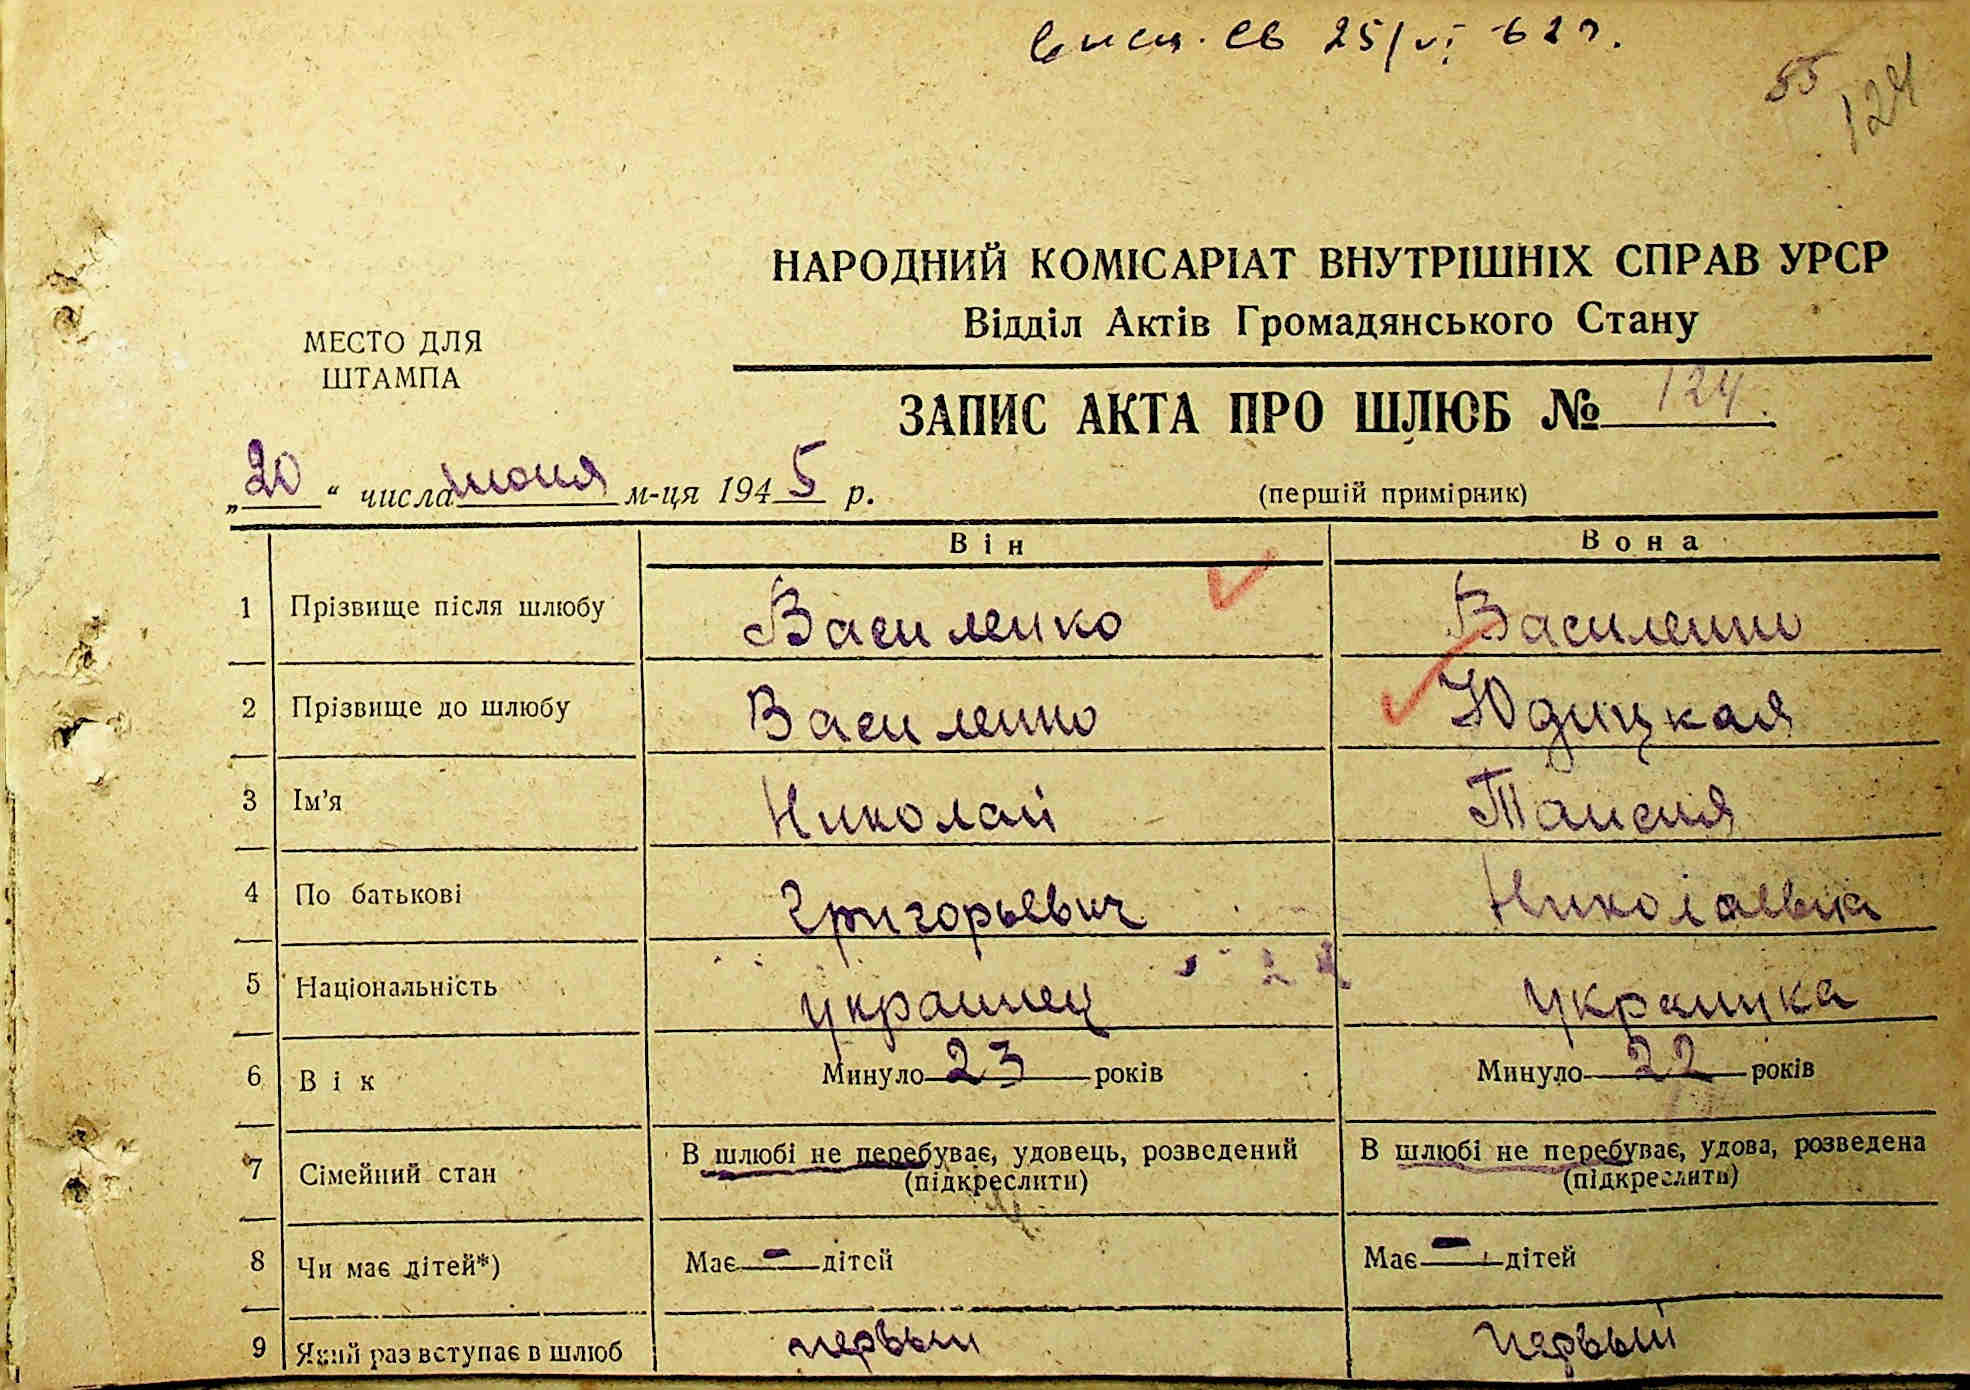 выд. св 25/VI 62 г.
55
124
НАРОДНИЙ КОМІСАРІАТ ВНУТРІШНІХ СПРАВ УРСР
Відділ Актів Громадянського Стану
МЕСТО ДЛЯ
ШТАМПА
ЗАПИС АКТА ПРО ШЛЮБ № 124.
„20“ числа июня м-ця 1945 р.
(першій примірник)
Він Вона
1 Прізвище після шлюбу Василенко Василенко
2 Прізвище до шлюбу Василенко Юдицкая
3 Ім'я Николай Таисия
4 По батькові Григорьевич Николаевна
5 Національність украинец украинка
6 Вік Минуло 23 років Минуло 22 років
7 Сімейний стан В шлюбі не перебуває, удовець, розведений В шлюбі не перебуває, удова, розведена
(підкреслити) (підкреслити)
8 Чи має дітей*) Має — дітей Має — дітей
9 Який раз вступає в шлюб первый первый